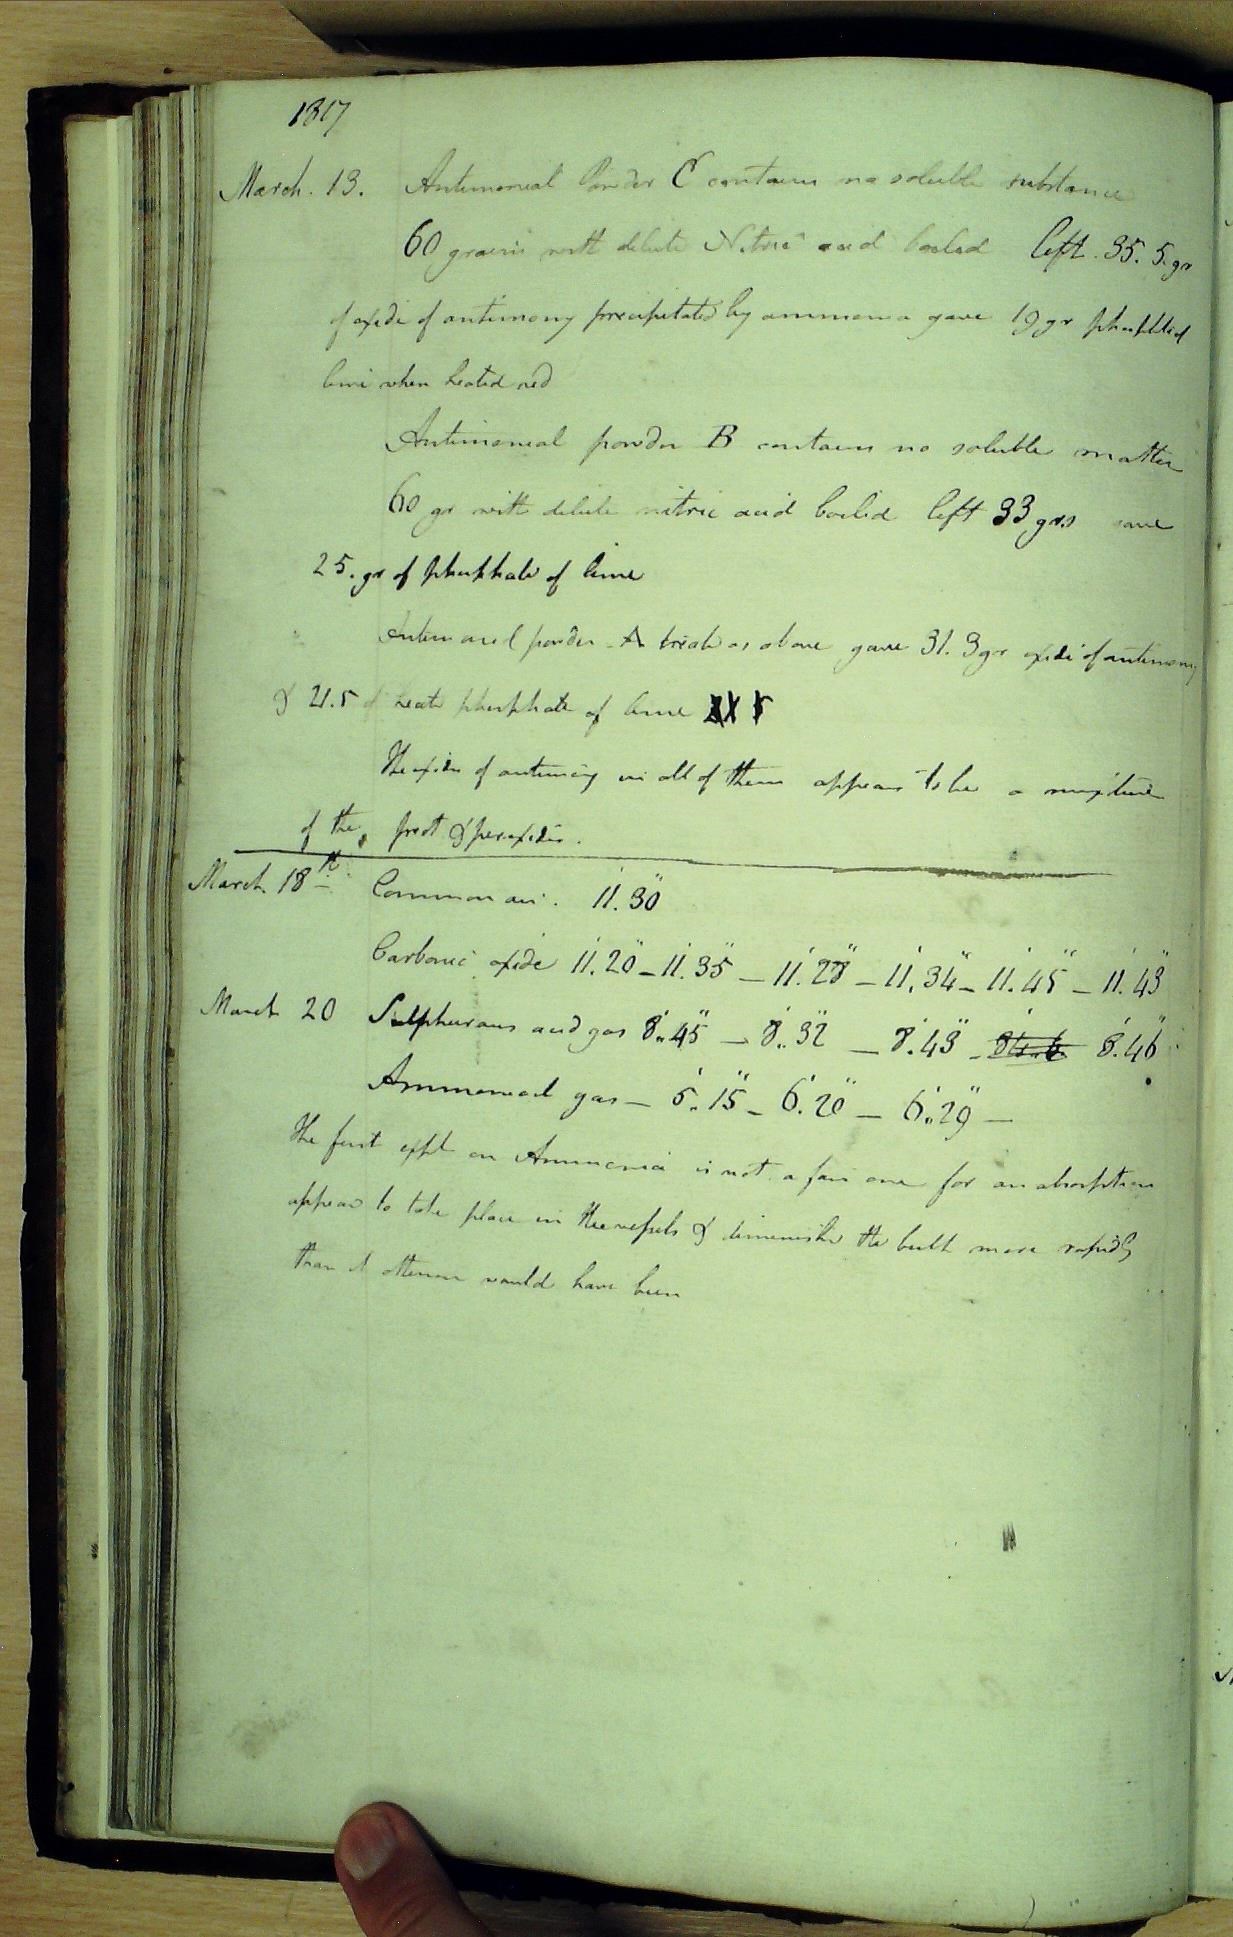 1817
March. 13. Antimonial Powder C contains no soluble substance
60 grains with dilute Nitric acid boiled left. 35. 5. gr
of oxide of antimony precipitated by ammonia gave 19 gr phosphate of
lime when heated red
Antimonial powder B contains no soluble matter
60 gr with dilute nitric acid boiled left 33 grs gave
25. gr of phosphate of lime
Antimonial powder A treated as above gave 31. 3 gr oxide of antimony
& 21.5 of heated phosphate of lime
The oxide of antimony in all of them appears to be a mixture
of the prot & peroxides.
March 18th Common air. 11'. 30"
Carbonic oxide 11'. 20" – 11'. 35" – 11'. 28" – 11'. 34" – 11'. 45" – 11'. 43"
March 20 Sulphurous acid gas 8'.. 45" – 8'.. 32" – 8'. 43" – 8'. 46"
Ammoniacal gas – 5'. 15" – 6'. 20" – 6'.. 29" –
The first expt on Ammonia is not a fair one for an absorption
appears to take place in the vessels & diminishes the bulk more rapidly
than it otherwise would have been